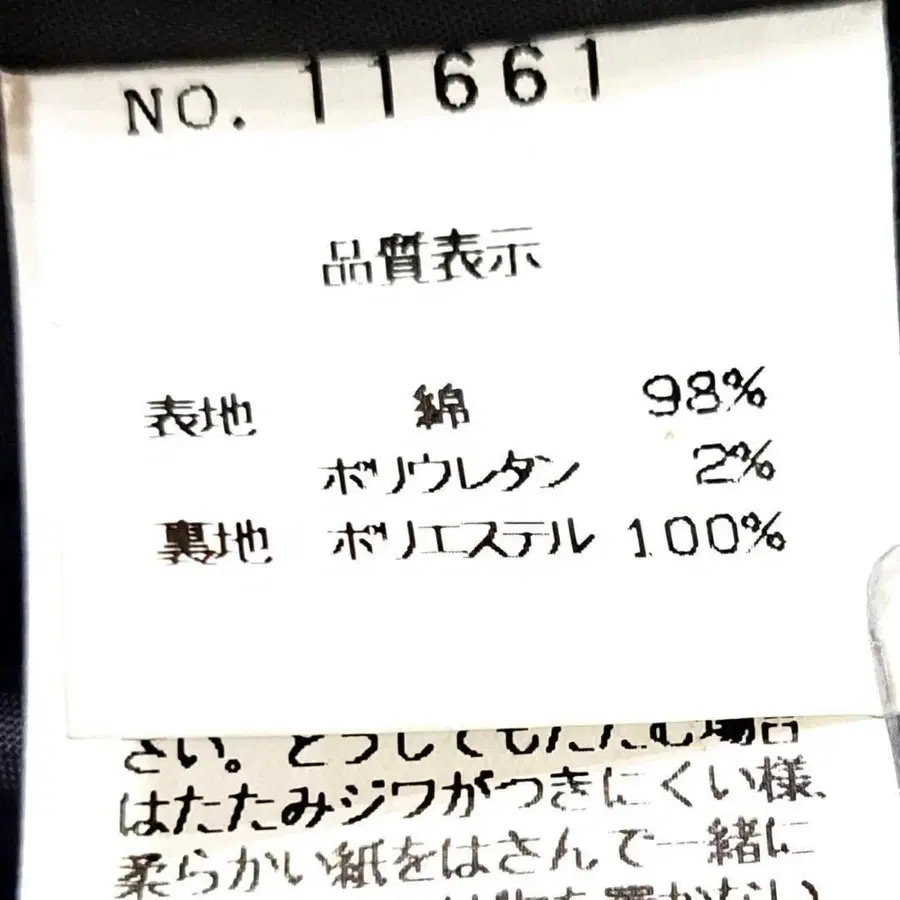 NO. 11661
品質表示
表地 綿 98%
ポリウレタン 2%
裏地 ポリエステル 100%
さい。どうしてもたたむ場合
はたたみジワがつきにくい様、
柔らかい紙をはさんで一緒に